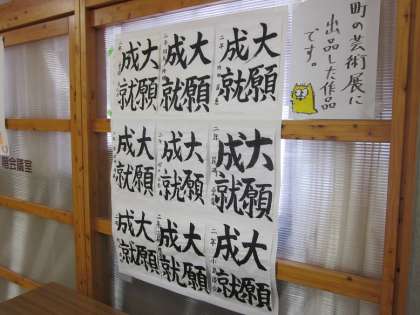 町の芸術展に
出品した作品
です。
階会議室
大願
成就
二年
大願
成就
二年
大願
成就
二年
大願
成就
二年
大願
成就
二年
大願
成就
二年
大願
成就
大願
成就
大願
成就
二年